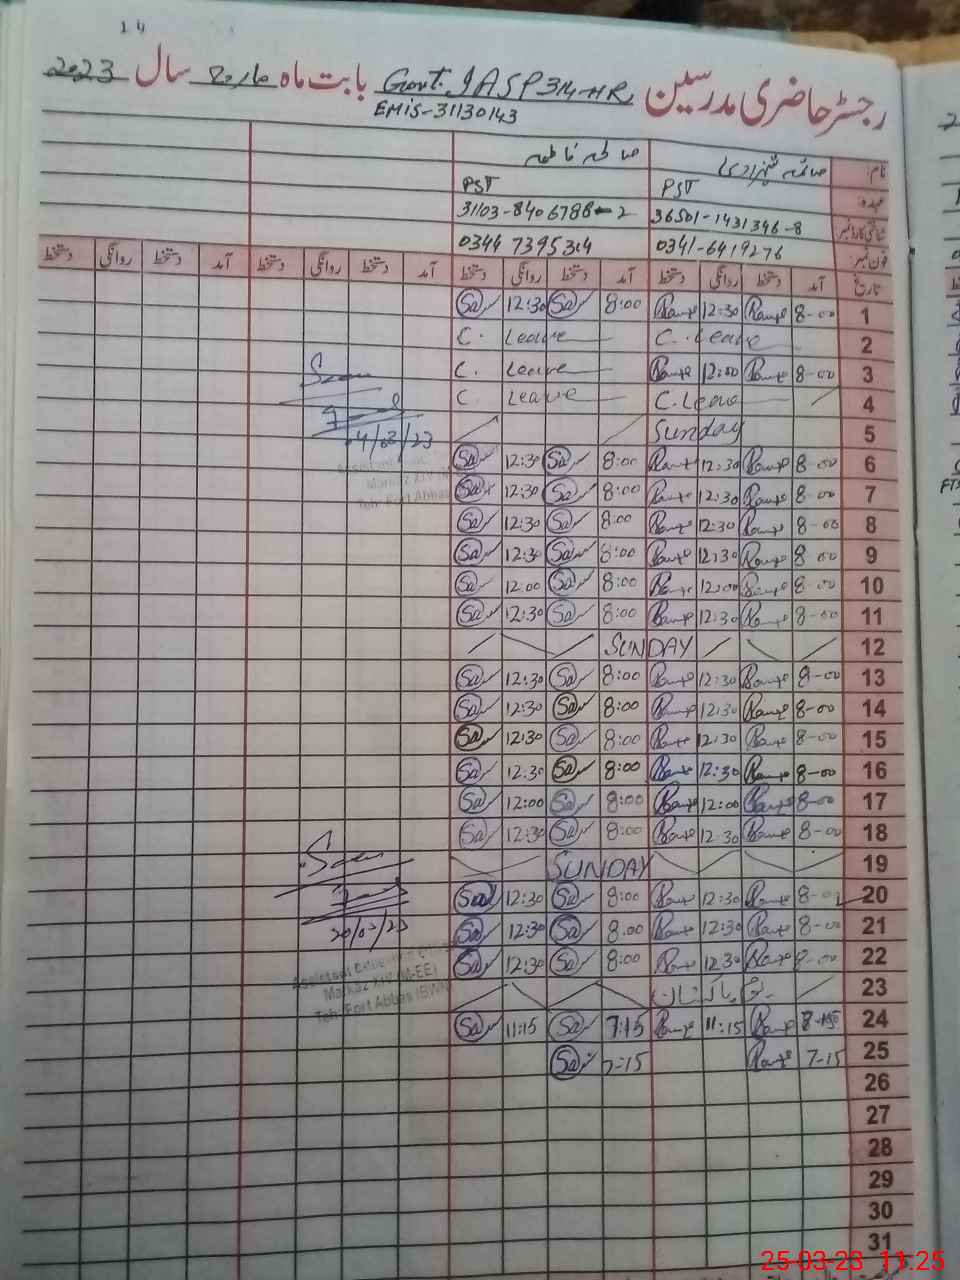 14
رجسٹر حاضری مدرسین Govt. GASP 314-HR بابت ماہ مارچ سال 2023
EMIS-31130143
نام:
عہدہ: PST PST
شناختی کارڈ نمبر 36501-1431346-8 31103-8406788-2
فون نمبر: 0341-6419276 0344 7395314
تاریخ آمد دستخط روانگی دستخط آمد دستخط روانگی دستخط آمد دستخط روانگی دستخط آمد دستخط روانگی دستخط
Sa 12:30 Sa 8:00 12:30 8-00 1
C. Leave C. Leave 2
C. Leave 12:00 8-00 3
C Leave C. Leave 4
Sunday 5
04/03/23
Sa 12:30 Sa 8:00 12:30 8-00 6
Markaz XIV
Teh: Fort Abbas
Sa 12:30 Sa 8:00 12:30 8-00 7
Sa 12:30 Sa 8:00 12:30 8-00 8
Sa 12:30 Sa 8:00 12:30 8-00 9
Sa 12:00 Sa 8:00 12:00 8-00 10
Sa 12:30 Sa 8:00 12:30 8-00 11
SUNDAY 12
Sa 12:30 Sa 8:00 12:30 8-00 13
Sa 12:30 Sa 8:00 12:30 8-00 14
Sa 12:30 Sa 8:00 12:30 8-00 15
Sa 12:30 Sa 8:00 12:30 8-00 16
Sa 12:00 Sa 8:00 12:00 8-00 17
Sa 12:30 Sa 8:00 12:30 8-00 18
SUNDAY 19
Sa 12:30 Sa 8:00 12:30 8-00 20
20/03/23
Sa 12:30 Sa 8:00 12:30 8-00 21
Sa 12:30 Sa 8:00 12:30 8-00 22
Assistant Education Officer
Markaz XIV (M-EE)
Teh: Fort Abbas (BWN)
یوم پاکستان 23
Sa 11:15 Sa 7:15 11:15 24
Sa 7-15 7-15 25
26
27
28
29
30
31
25-03-23 11:25